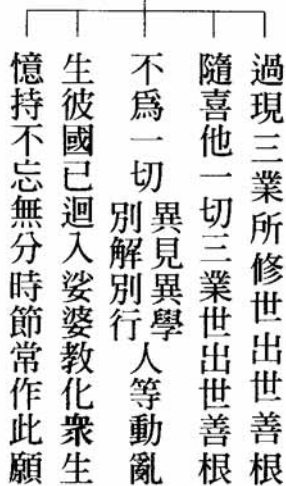 過現三業所修世出世善根
隨喜他一切三業世出世善根
不爲一切異見異學別解別行人等動亂
生彼國已迴入娑婆教化衆生
憶持不忘無分時節常作此願